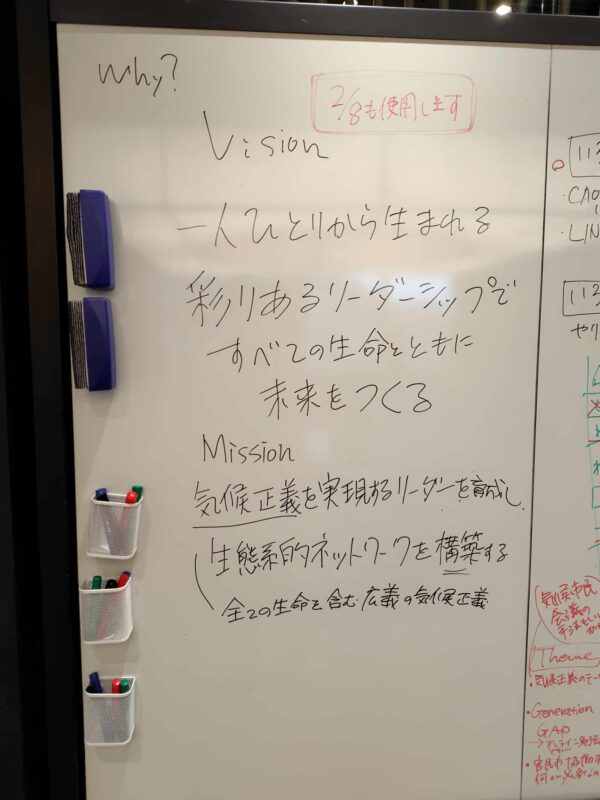 Why?
2/8も使用します
Vision
一人ひとりから生まれる
彩りあるリーダーシップで
すべての生命とともに
未来をつくる
Mission
気候正義を実現するリーダーを育成し
生態系的ネットワークを構築する
全ての生命を含む広義の気候正義
・LIN
やり
気候市民
会議の
Theme
・気候正義のテー
・Generation
GAP